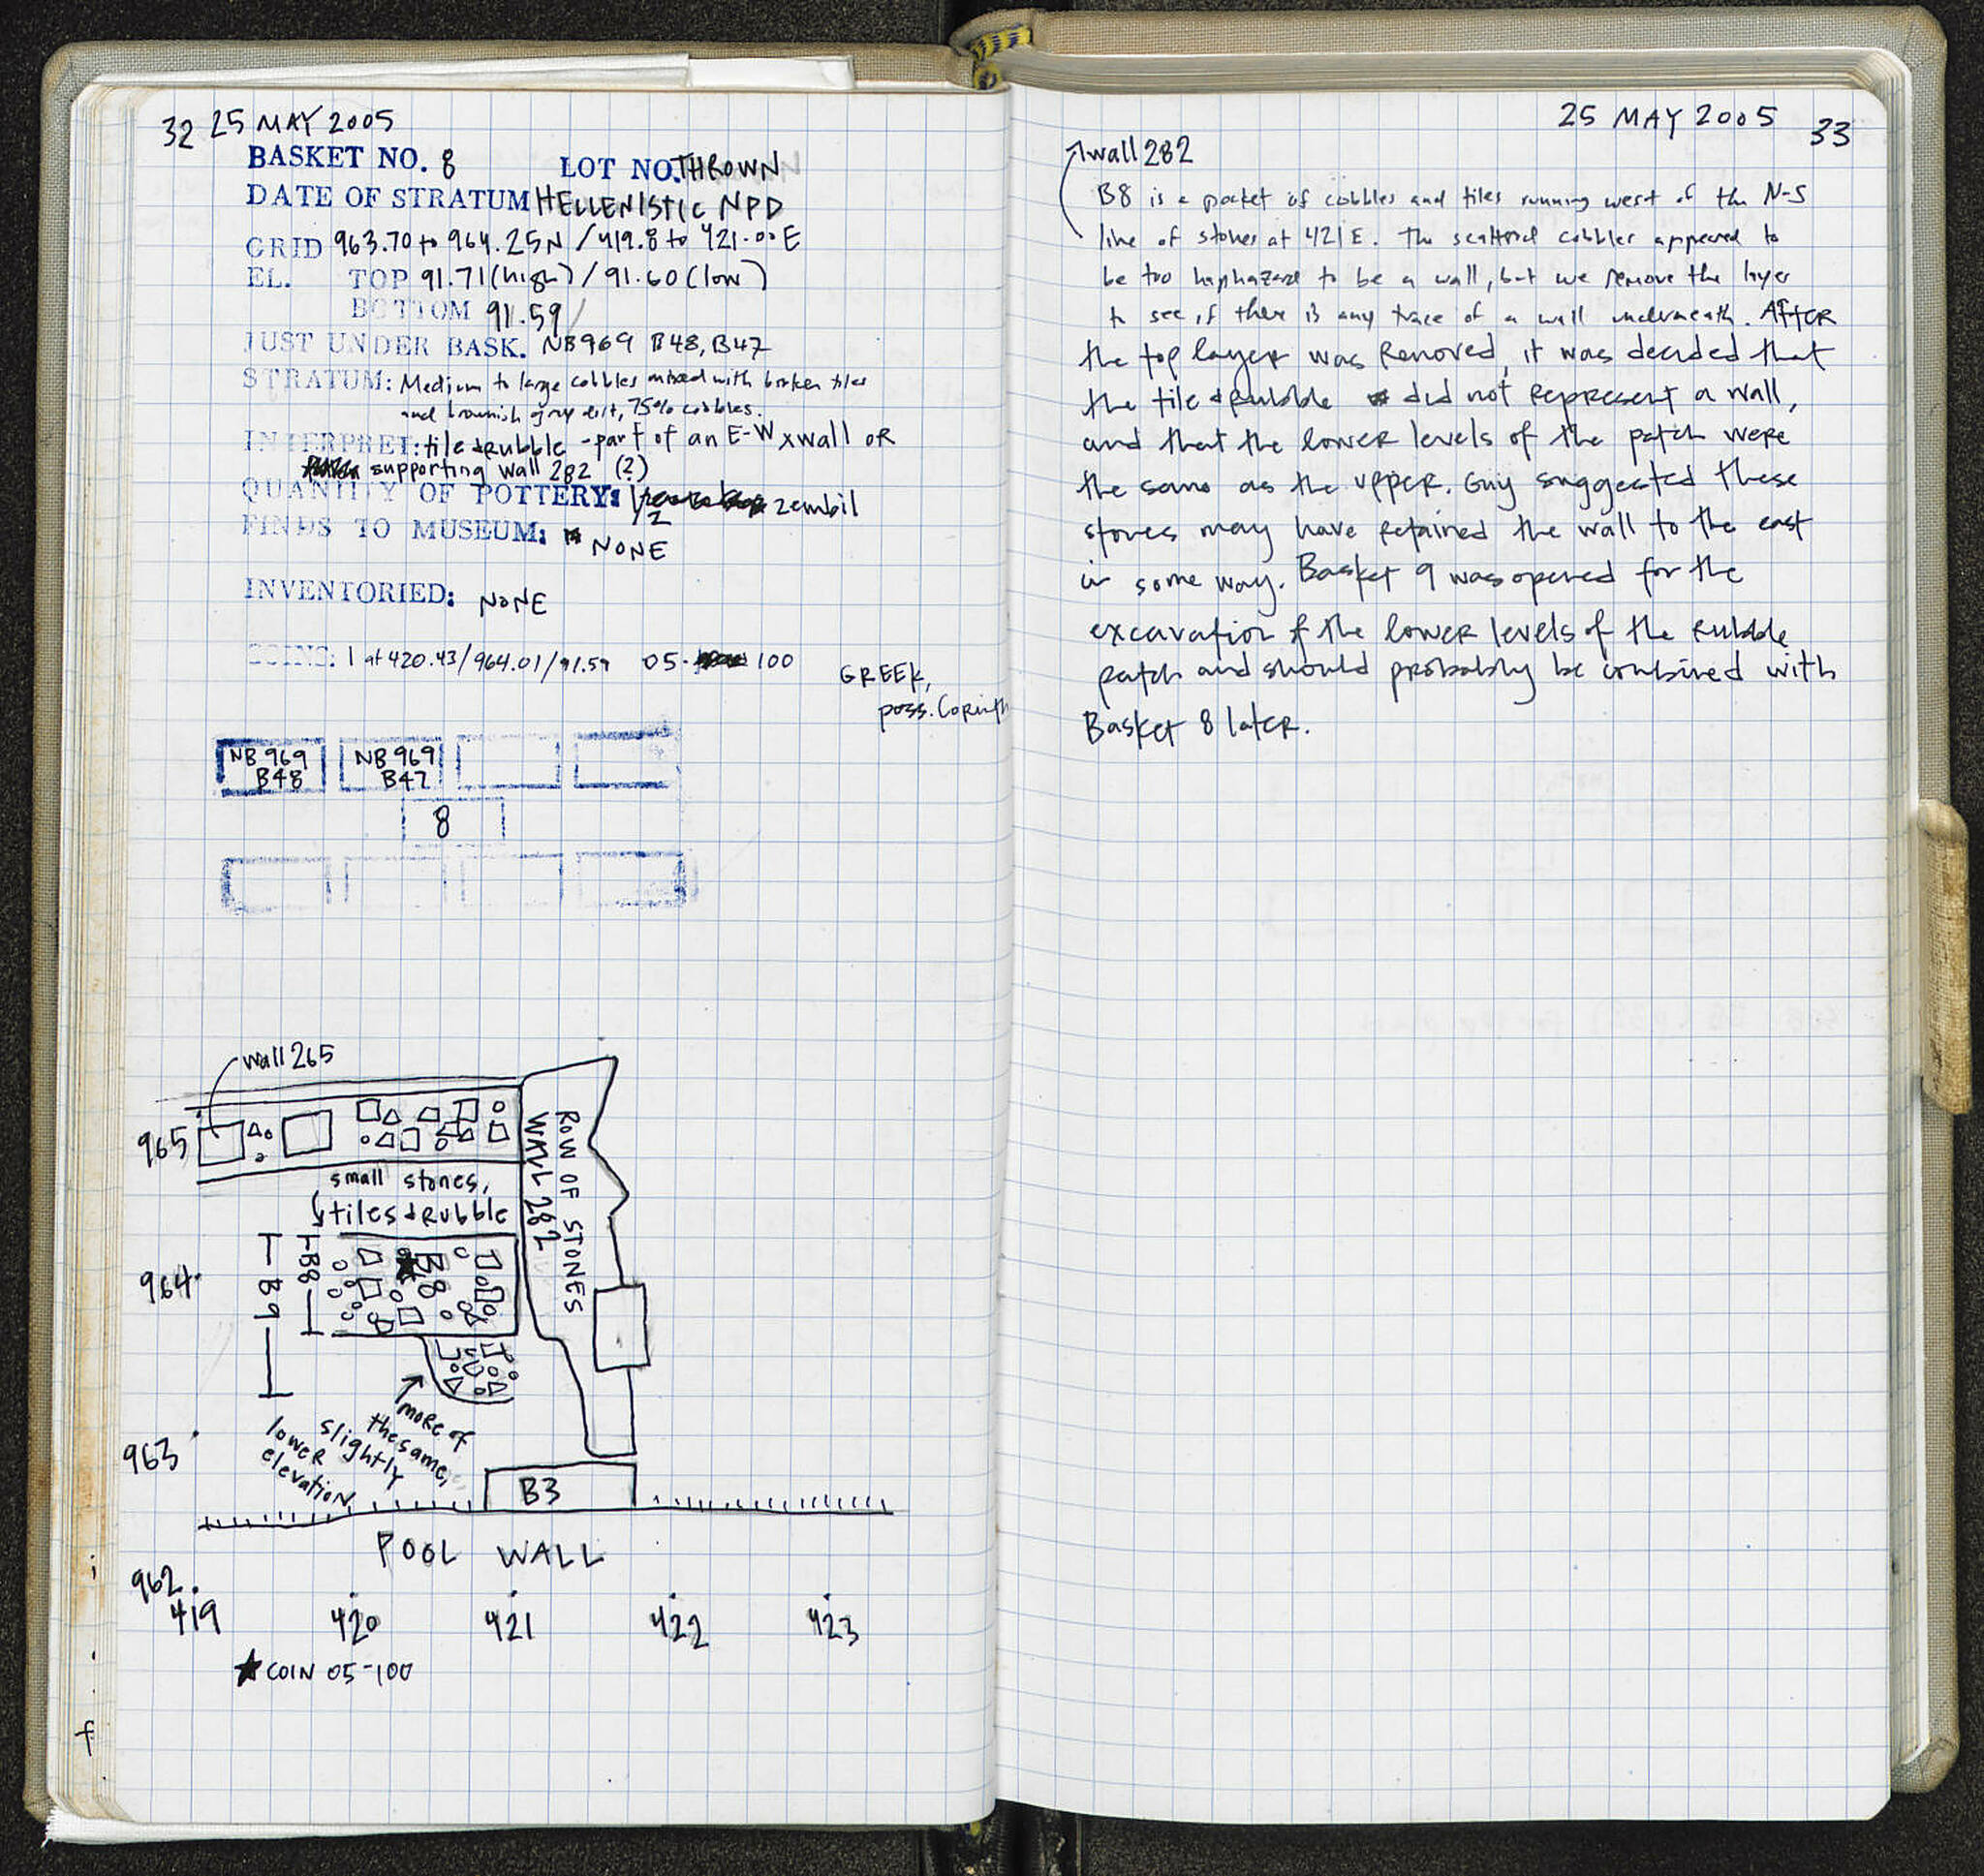 32 25 MAY 2005
BASKET NO. 8 LOT NO. THROWN
DATE OF STRATUM HELLENISTIC NPD
GRID 963.70 to 964.25N / 419.8 to 421.00E
EL. TOP 91.71 (high) / 91.60 (low)
BOTTOM 91.59
JUST UNDER BASK. NB969 B48, B47
STRATUM: Medium to large cobbles mixed with broken tiles
and brownish gray dirt, 75% cobbles.
INTERPRET: tile & rubble - part of an E-W xwall OR
supporting wall 282 (?)
QUANTITY OF POTTERY: 1/2 zembil
FINDS TO MUSEUM: NONE
INVENTORIED: NONE
COINS: 1 at 420.43/964.01/91.59 05- 100
GREEK,
poss. Corinth
NB969 B48
NB969 B47
8
wall 265
965
small stones,
tiles & rubble
ROW OF STONES
WALL 282
964
B9
B8
B8
more of
the same,
slightly
lower
elevation
963
B3
POOL WALL
962
419 420 421 422 423
★ COIN 05-100
f
25 MAY 2005 33
wall 282
B8 is a pocket of cobbles and tiles running west of the N-S
line of stones at 421E. The scattered cobbles appeared to
be too haphazard to be a wall, but we remove the layer
to see if there is any trace of a wall underneath. AFTER
the top layer was removed, it was decided that
the tile & rubble did not represent a wall,
and that the lower levels of the patch were
the same as the upper. Guy suggested these
stones may have retained the wall to the east
in some way. Basket 9 was opened for the
excavation of the lower levels of the rubble
patch and should probably be combined with
Basket 8 later.